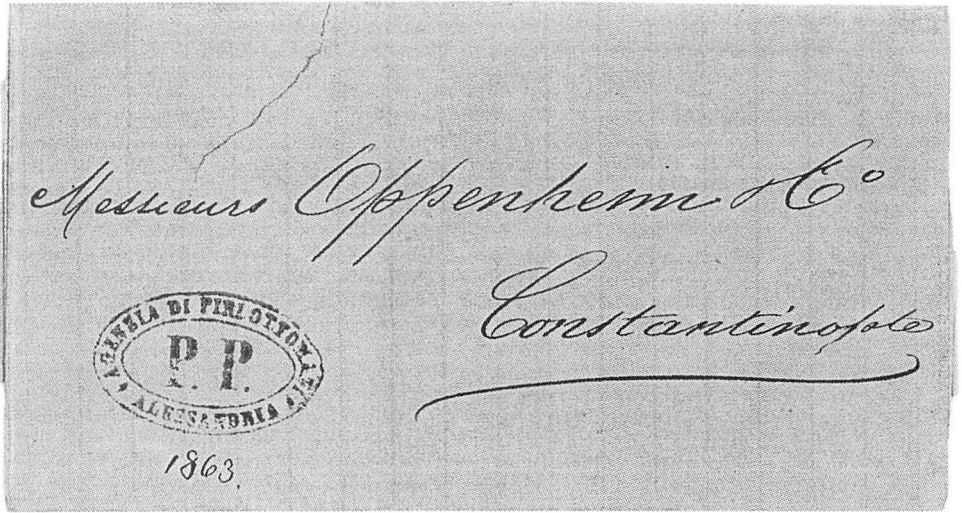 Messieurs Oppenheim & Cº
Constantinople
AGENZIA DI PIRI OTTOMANI
P. P.
ALESSANDRIA
1863.